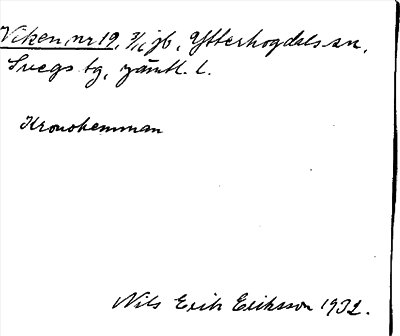 Viken, nr 19, 3/6 jb, Ytterhogdals sn,
Svegs tg, Jämtl. l.
Kronohemman
Nils Erik Eriksson 1932.